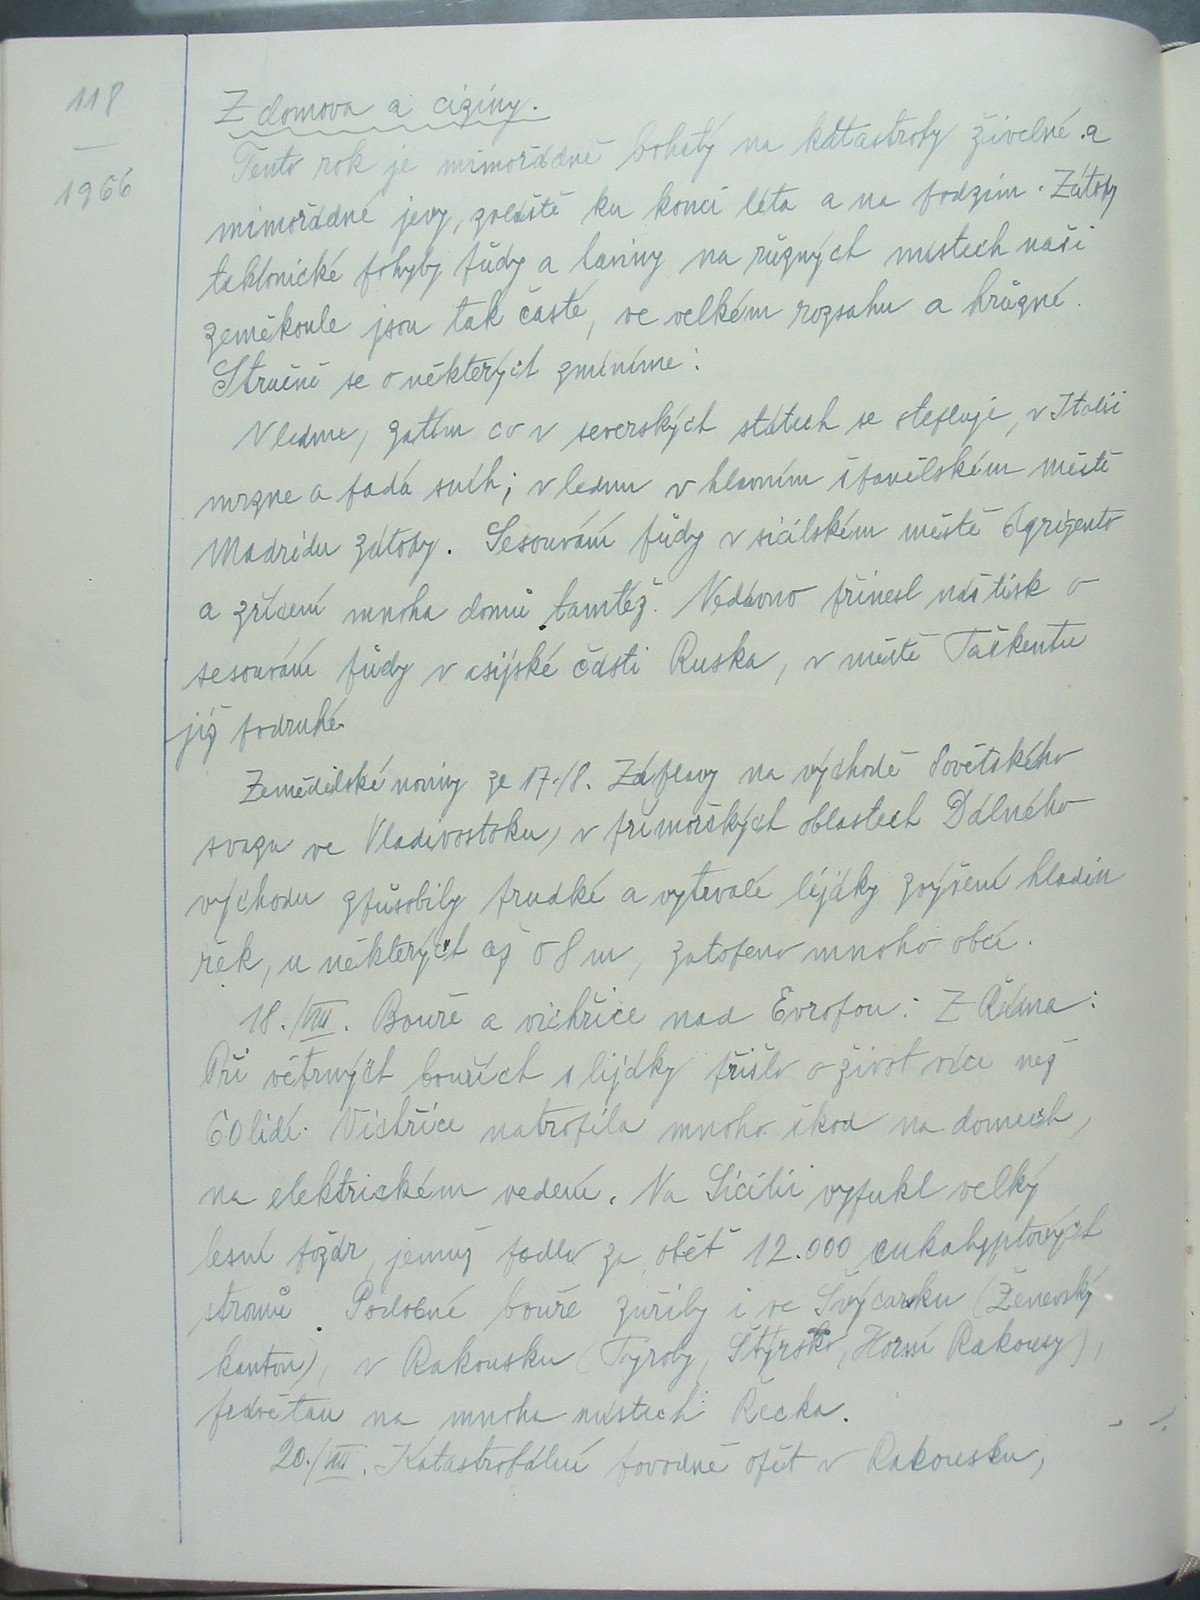 118
1966
Z domova a ciziny.
Tento rok je mimořádně bohatý na katastrofy živelné a
mimořádné jevy, zvláště ku konci léta a na podzim. Zátopy
tektonické pohyby půdy a laviny na různých místech naší
zeměkoule jsou tak časté, ve velkém rozsahu a hrůzné.
Stručně se o některých zmíníme:
V lednu, zatím co v severských státech se otepluje, v Italii
mrzne a padá sníh; v lednu v hlavním španělském městě
Madridu zátopy. Sesouvání půdy v sicilském městě Agrigento
a zřícení mnoha domů tamtéž. Nedávno přinesl náš tisk o
sesouvání půdy v asijské části Ruska, v městě Taškentu
již podruhé.
Zemědělské noviny ze 17./8. Záplavy na východě Sovětského
svazu ve Vladivostoku, v přímořských oblastech Dálného
východu způsobily prudké a vytrvalé lijáky zvýšení hladin
řek, u některých až o 8 m, zatopeno mnoho obcí.
18./VIII. Bouře a vichřice nad Evropou: Z Říma:
Při větrných bouřích s lijáky přišlo o život více než
60 lidí. Vichřice natropila mnoho škod na domech,
na elektrickém vedení. Na Sicilii vypukl velký
lesní požár, jemuž padlo za oběť 12.000 eukalyptových
stromů. Podobné bouře zuřily i ve Švýcarsku (Ženevský
kanton), v Rakousku (Tyroly, Štýrsko, Horní Rakousy),
na mnoha místech Řecka.
20./VIII. Katastrofální povodně opět v Rakousku,